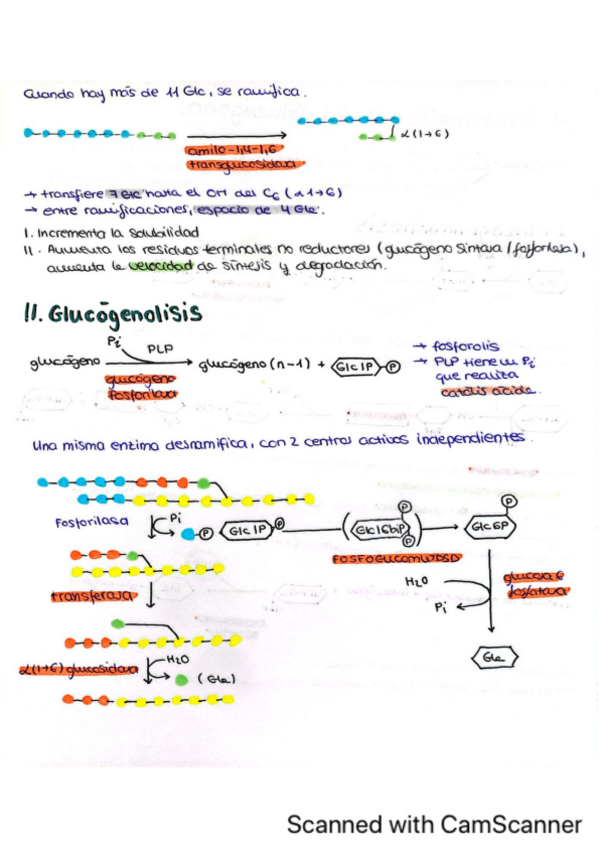 Cuando hay más de 11 Glc, se ramifica.
α(1→6)
amilo-1,4-1,6
transglucosidasa
→ transfiere 7 Glc hasta el OH del C6 (α 1→6)
→ entre ramificaciones, espacio de 4 Glc.
I. Incrementa la solubilidad
II. Aumenta los residuos terminales no reductores (glucógeno sintasa / fosforilasa),
aumenta la velocidad de síntesis y degradación.
II. Glucógenolisis
Pi PLP
glucógeno → glucógeno (n-1) + Glc1P P
glucógeno
fosforilasa
→ fosforolis
→ PLP tiene un Pi
que realiza
catálisis ácida.
Una misma enzima desramifica, con 2 centros activos independientes.
Fosforilasa Pi P Glc1P P Glc16biP P P Glc6P P
FOSFOGLUCOMUTASA
transferasa
H2O
Pi
glucosa 6
fosfatasa
α(1→6) glucosidasa H2O (Glc)
Glc
Scanned with CamScanner